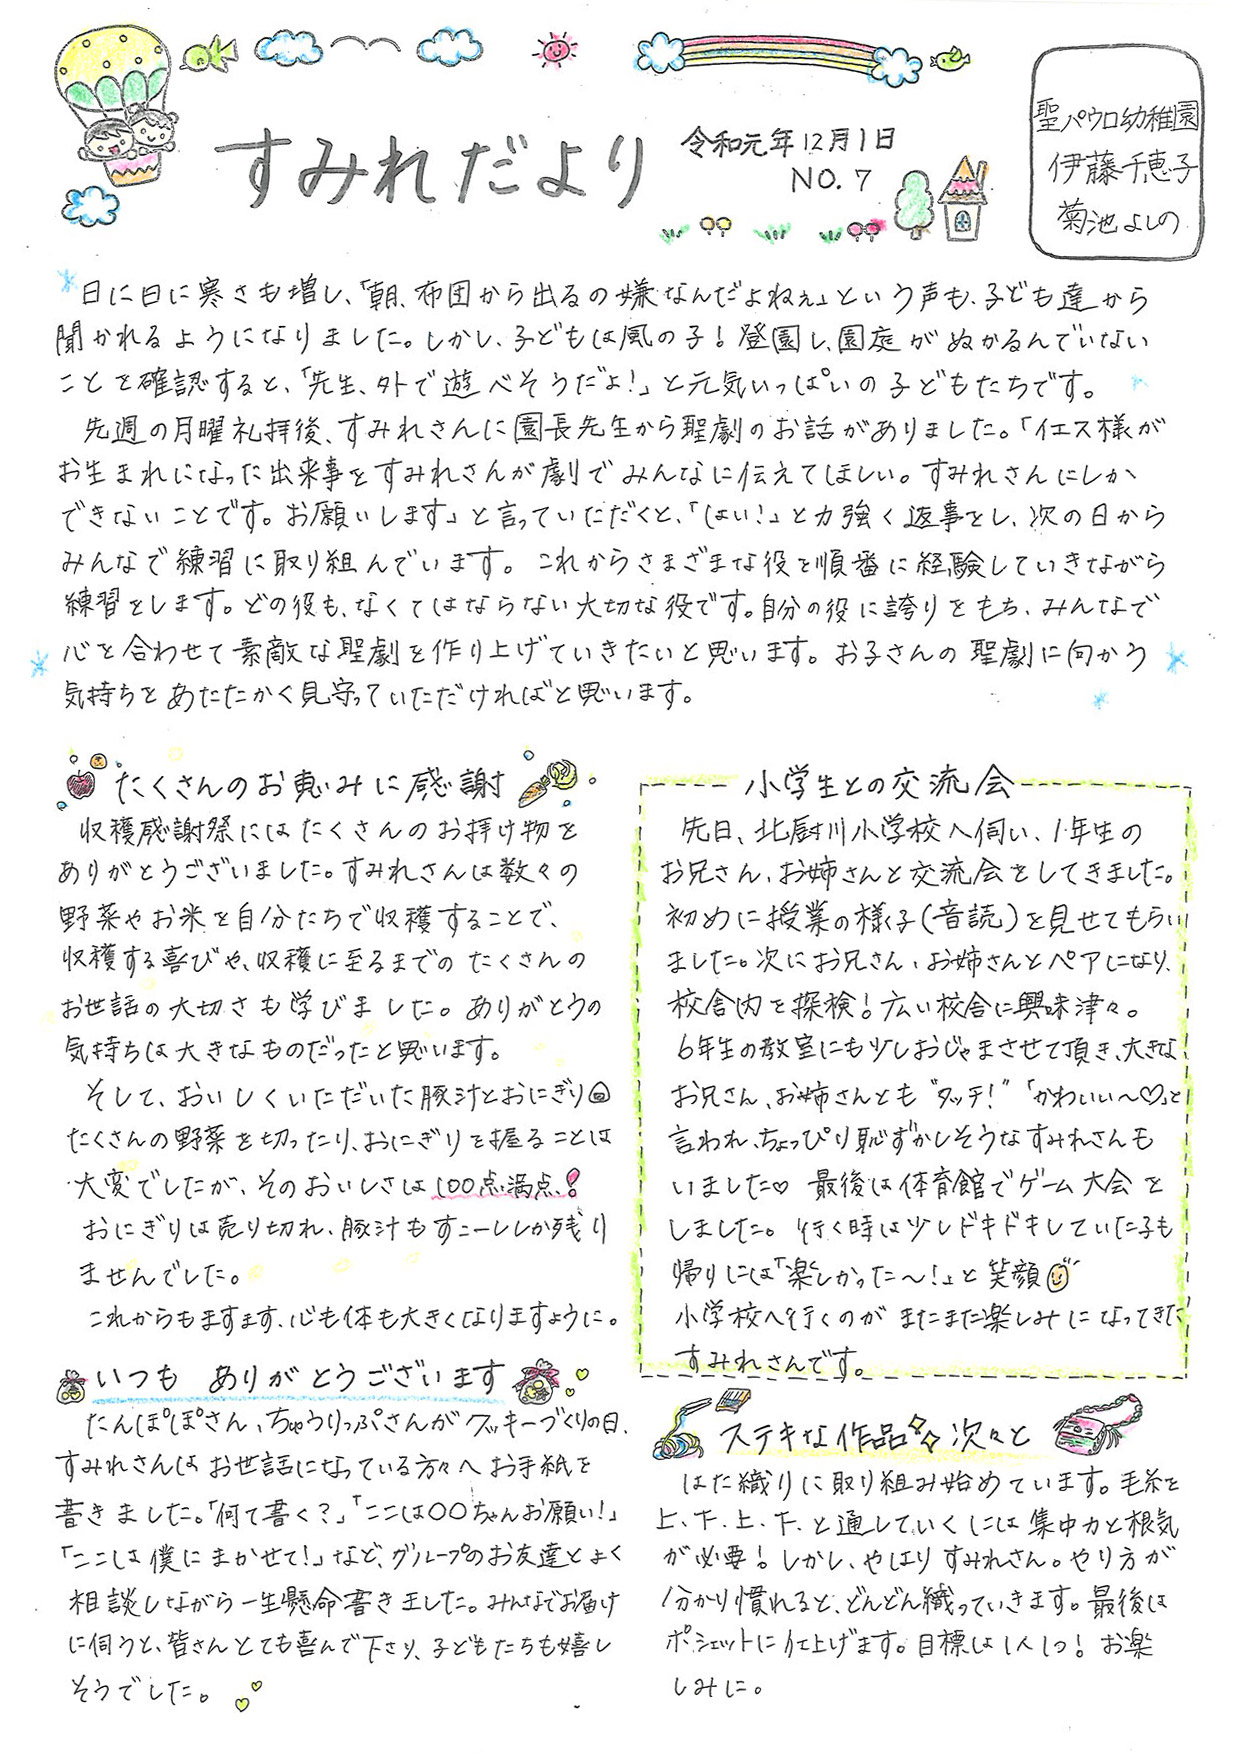 すみれだより
令和元年12月1日
NO.7
聖パウロ幼稚園
伊藤千恵子
菊池よしの
日に日に寒さも増し、「朝、布団から出るの嫌なんだよねぇ」という声も、子ども達から
聞かれるようになりました。しかし、子どもは風の子！登園し、園庭がぬかるんでいない
ことを確認すると、「先生、外で遊べそうだよ！」と元気いっぱいの子どもたちです。
先週の月曜礼拝後、すみれさんに園長先生から聖劇のお話がありました。「イエス様が
お生まれになった出来事をすみれさんが劇でみんなに伝えてほしい。すみれさんにしか
できないことです。お願いします」と言っていただくと、「はい！」と力強く返事をし、次の日から
みんなで練習に取り組んでいます。これからさまざまな役を順番に経験していきながら
練習をします。どの役も、なくてはならない大切な役です。自分の役に誇りをもち、みんなで
心を合わせて素敵な聖劇を作り上げていきたいと思います。お子さんの聖劇に向かう
気持ちをあたたかく見守っていただければと思います。
たくさんのお恵みに感謝
収穫感謝祭にはたくさんのお捧け物を
ありがとうございました。すみれさんは数々の
野菜やお米を自分たちで収穫することで、
収穫する喜びや、収穫に至るまでのたくさんの
お世話の大切さも学びました。ありがとうの
気持ちは大きなものだったと思います。
そして、おいしくいただいた豚汁とおにぎり
たくさんの野菜を切ったり、おにぎりを握ることは
大変でしたが、そのおいしさは100点満点！
おにぎりは売り切れ、豚汁もすこーししか残り
ませんでした。
これからもますます、心も体も大きくなりますように。
いつも ありがとうございます
たんぽぽさん、ちゅうりっぷさんがクッキーづくりの日、
すみれさんはお世話になっている方々へお手紙を
書きました。「何て書く？」「ここは○○ちゃんお願い！」
「ここは僕にまかせて！」など、グループのお友達とよく
相談しながら一生懸命書きました。みんなでお届け
に伺うと、皆さんとても喜んで下さり、子どもたちも嬉し
そうでした。
小学生との交流会
先日、北厨川小学校へ伺い、1年生の
お兄さん、お姉さんと交流会をしてきました。
初めに授業の様子（音読）を見せてもらい
ました。次にお兄さん、お姉さんとペアになり、
校舎内を探検！広い校舎に興味津々。
6年生の教室にも少しおじゃまさせて頂き、大きな
お兄さん、お姉さんとも"タッチ！"「かわいい～♡」と
言われ、ちょっぴり恥ずかしそうなすみれさんも
いました♡ 最後は体育館でゲーム大会を
しました。行く時は少しドキドキしていた子も
帰りには「楽しかった～！」と笑顔
小学校へ行くのがまたまた楽しみになってきた
すみれさんです。
ステキな作品 次々と
はた織りに取り組み始めています。毛糸を
上、下、上、下、と通していくには集中力と根気
が必要！しかし、やはりすみれさん。やり方が
分かり慣れると、どんどん織っていきます。最後は
ポシェットに仕上げます。目標は1人1つ！お楽
しみに。